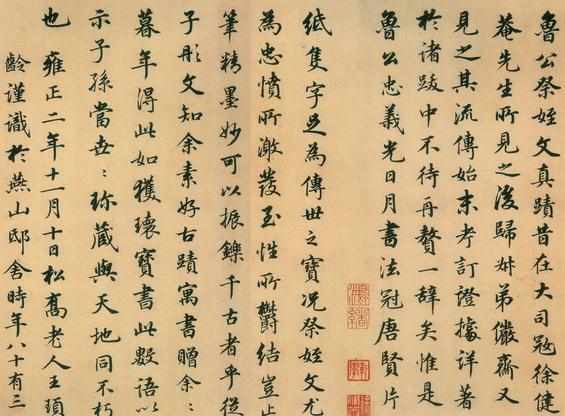 魯公祭姪文真蹟昔在大司寇徐健
菴先生所見之後歸姊弟儼齋又
見之其流傳始末考訂證據詳著
於諸跋中不待再贅一辭矣惟是
魯公忠義光日月書法冠唐賢片
紙隻字足為傳世之寶況祭姪文尤
為忠憤所激發至性所鬱結豈止
筆精墨妙可以振鑠千古者乎從
子彤文知余素好古蹟寓書贈余〻
暮年得此如獲瓌寶書此數語以
示子孫當世〻珍藏與天地同不朽
也 雍正二年十一月十日松喬老人王頊
齡謹識於燕山邸舍時年八十有三